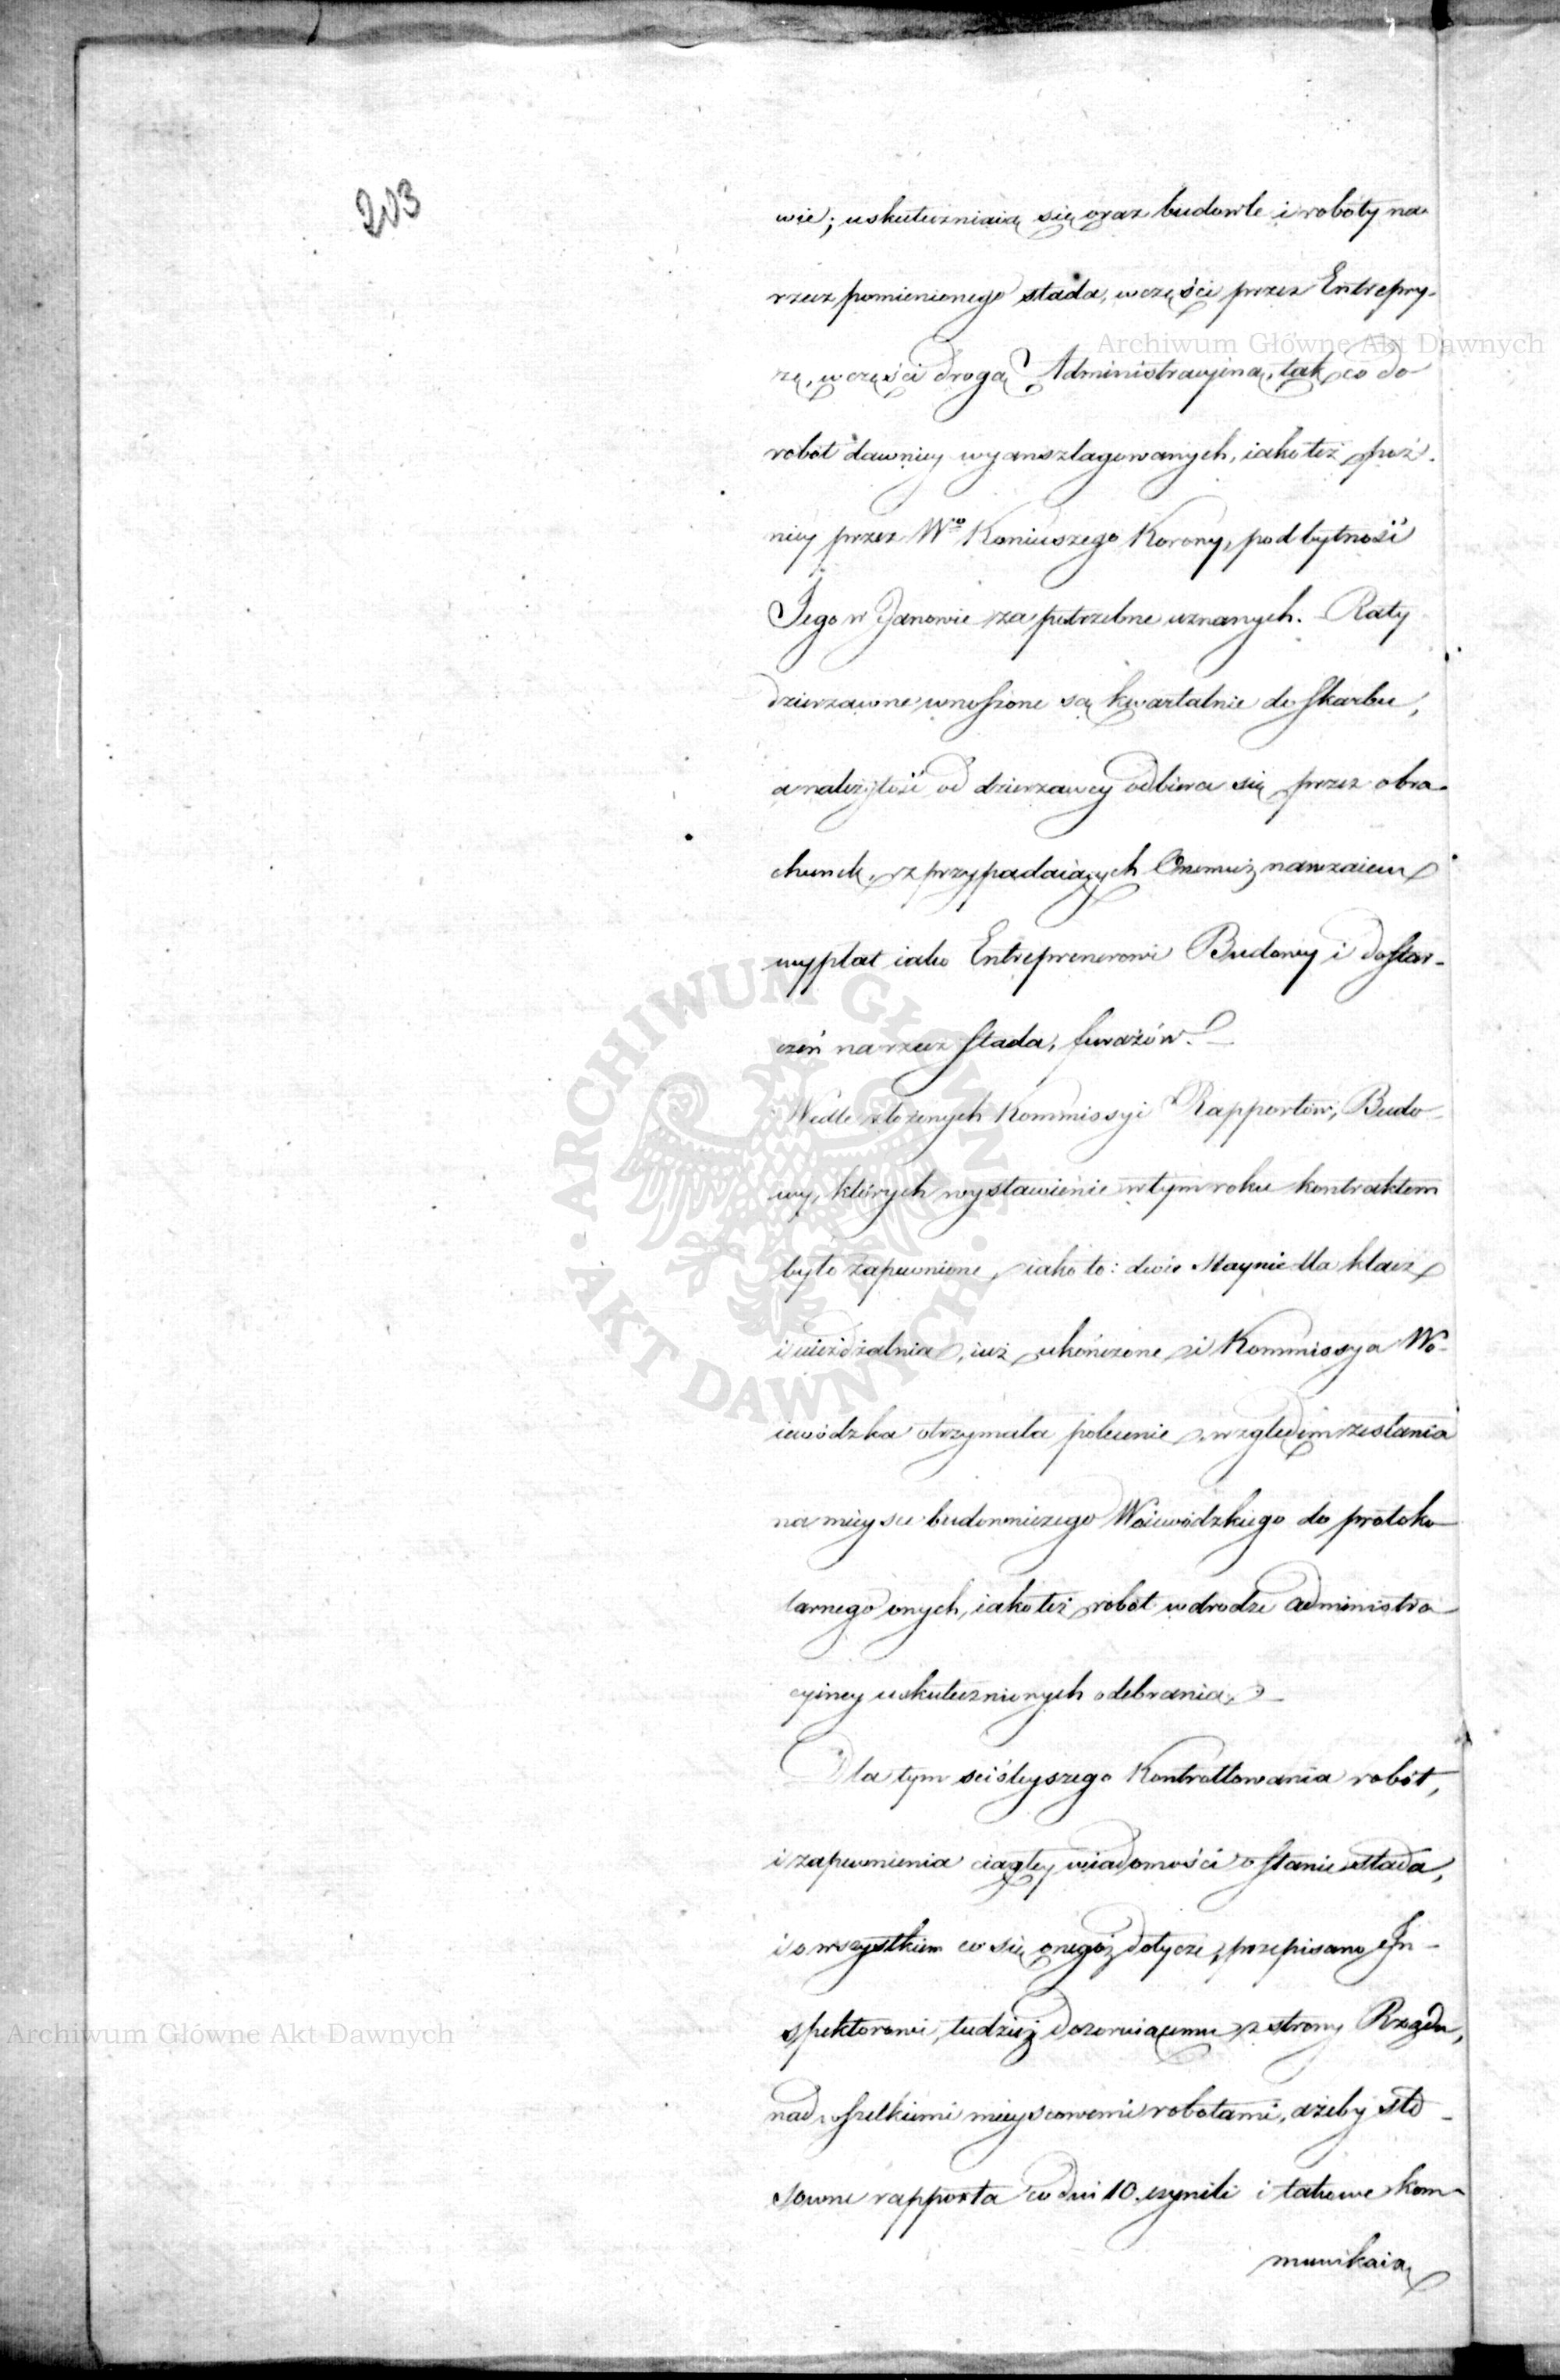 203
wie; uskuteczniaią się oraz budowle i roboty na
rzecz pomienionego stada, wczęści przez Entrepry-
zę, wczęści drogą Administracyiną, tak co do
robot dawniey wyanszlagowanych, iako też póź-
niey przez Wgo Koniuszego Korony, pod bytność
Jego w Janowie za potrzebne uznanych. Raty
dzierzawne wnoszone są kwartalnie do skarbu,
a należytość od dzierzawcy odbiera się przez obra-
chunek, z przypadaiących Onemuż nawzaiem
wypłat iako Entreprenerowi Budowy i dostar-
czeń na rzecz stada, furażów.
Wedle złożonych Kommissyi Rapportów, Budo-
wy, których wystawienie w tym roku kontraktem
było zapewnione, iako to: dwie Staynie dla klacz
i uieżdżalnia, iuż ukończone i Kommissya Wo-
iewódzka otrzymała polecenie względem zesłania
na mieysce budowniczego Woiewódzkiego do protoku-
larnego onych, iako też robót w drodze administra-
cyiney uskutecznionych odebrania.
Dla tym ściśleyszego Kontrollowania robót,
i zapewnienia ciągłey wiadomości o stanie stada,
i o wszystkiem co się onegoż dotycze, przepisano In-
spektorowi, tudzież dozoruiącemu z strony Rządu,
nad wszelkiemi mieyscowemi robotami, ażeby sto-
sowne rapporta co dni 10. czynili i takowe kom-
munikaią
Archiwum Główne Akt Dawnych
Archiwum Główne Akt Dawnych
ARCHIWUM GŁÓWNE · AKT DAWNYCH ·